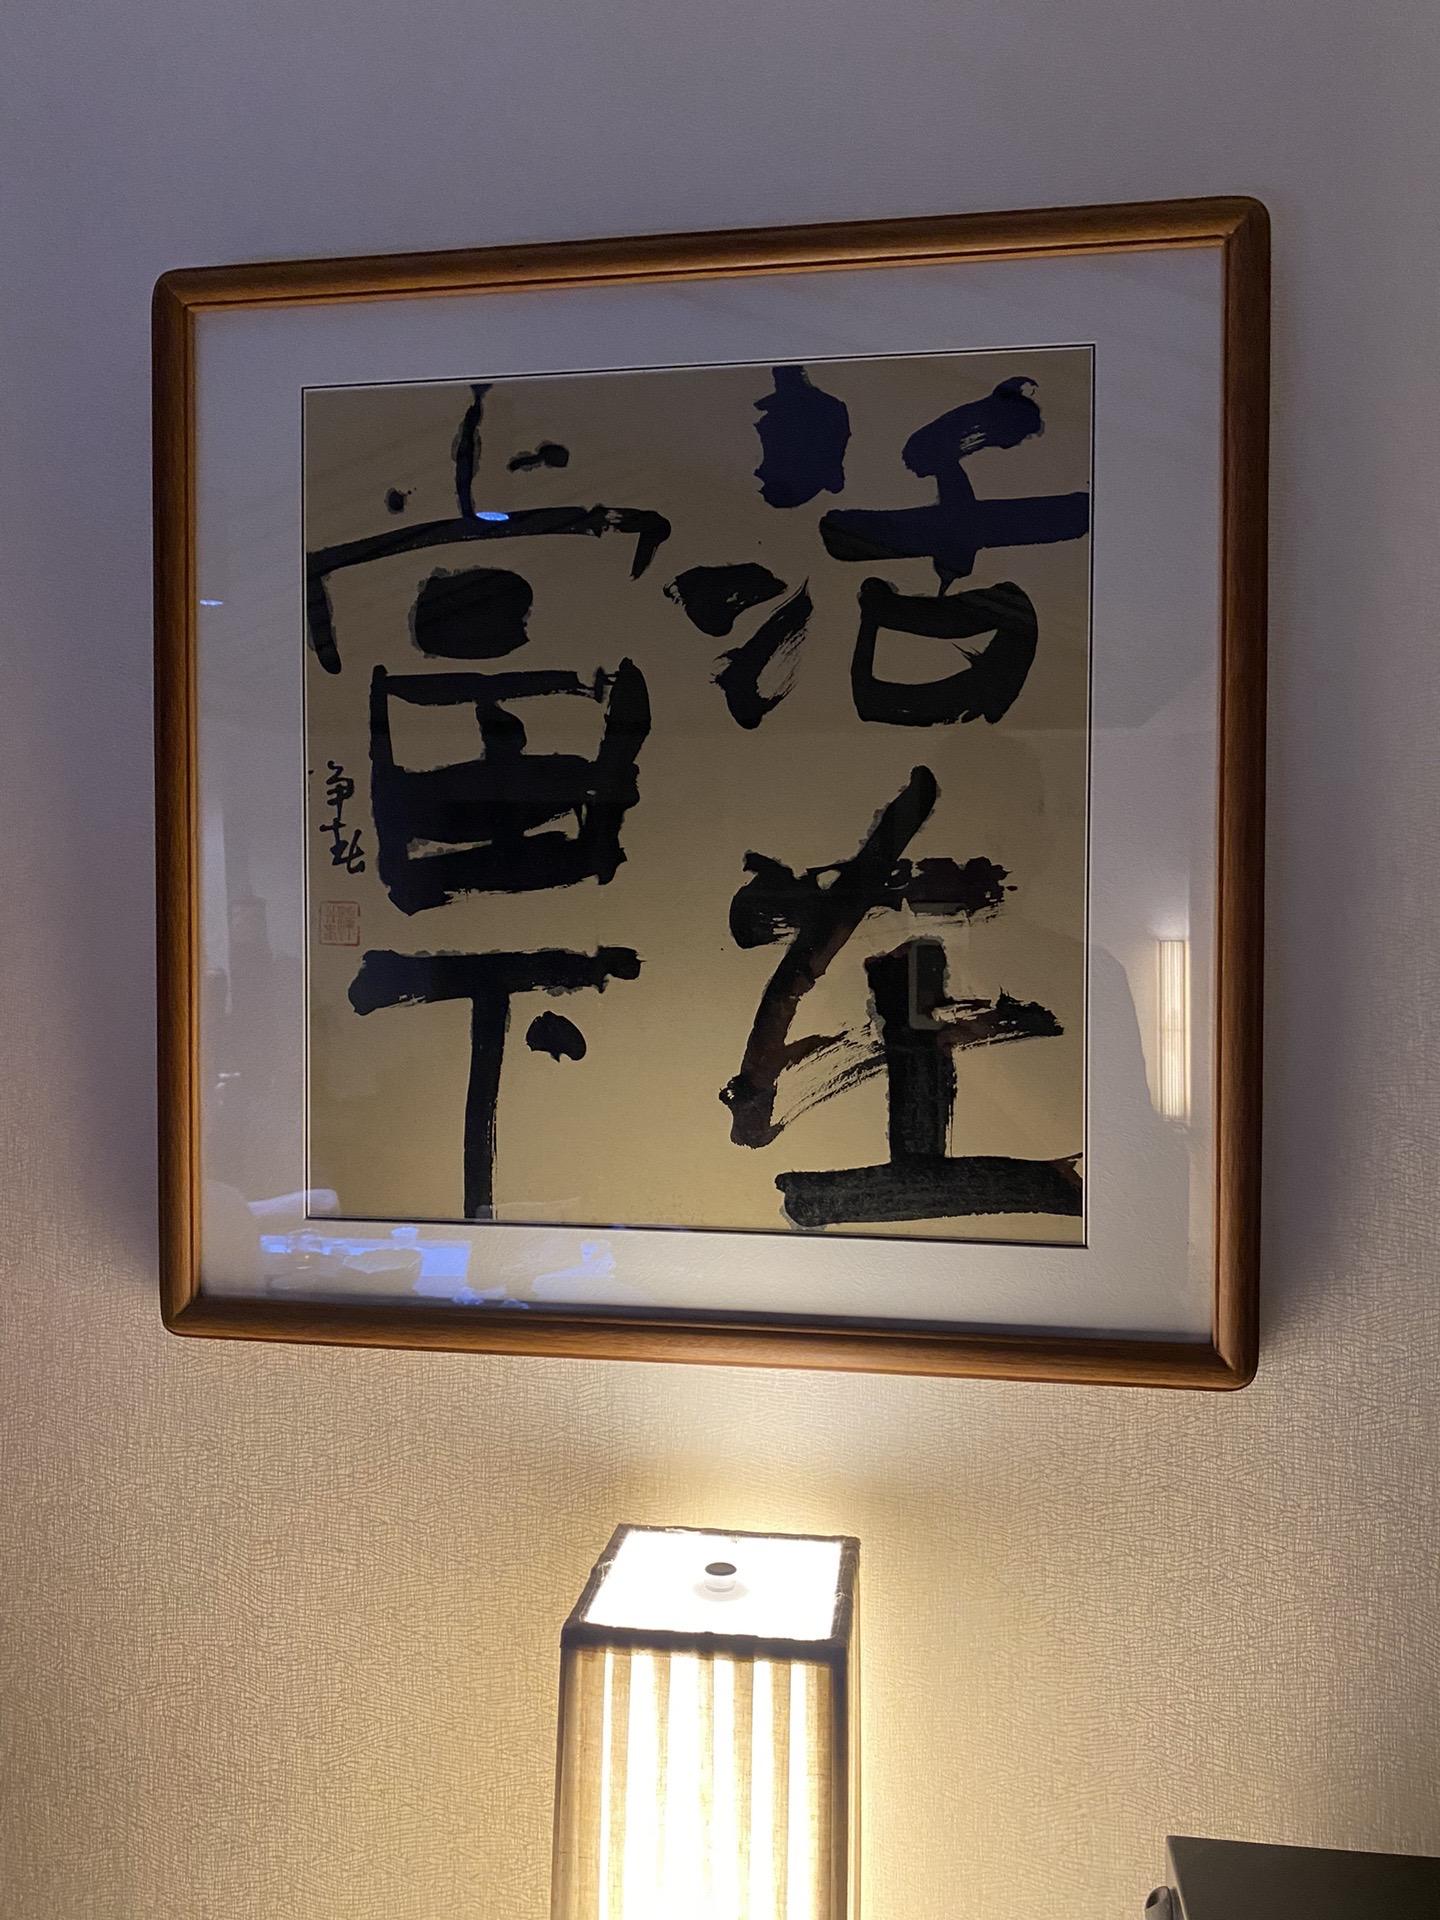 活在
當下